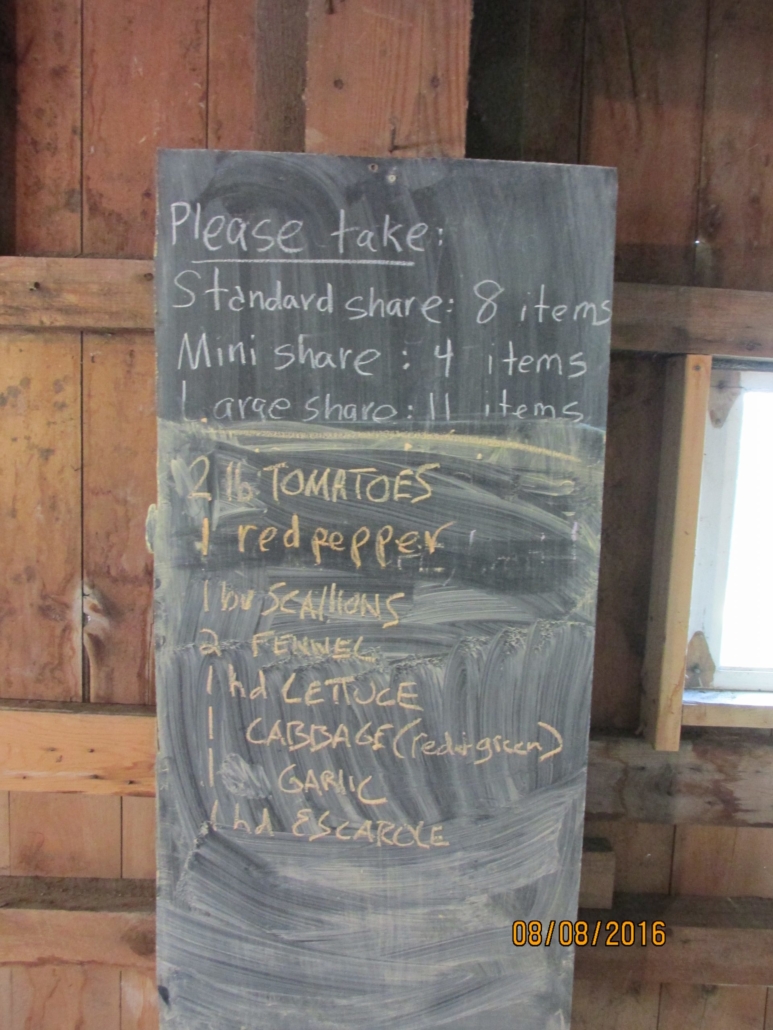 Please take:
Standard share: 8 items
Mini share: 4 items
Large share: 11 items
2 lb TOMATOES
1 red pepper
1 bu SCAllIONS
2 FENNEL
1 hd LETTUCE
1 CABBAGE (red or green)
1 GARLIC
1 hd ESCAROLE
08/08/2016